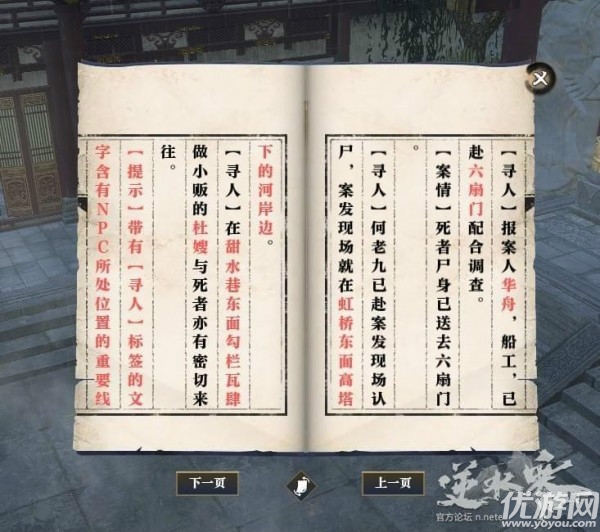 【寻人】报案人华舟，船工，已
赴六扇门配合调查。
【案情】死者尸身已送去六扇门
。
【寻人】何老九已赴案发现场认
尸，案发现场就在虹桥东面高塔
下的河岸边。
【寻人】在甜水巷东面勾栏瓦肆
做小贩的杜嫂与死者亦有密切来
往。
【提示】带有【寻人】标签的文
字含有NPC所处位置的重要线
下一页
上一页
逆水寒
官方论坛 n.nete
优游网
www.yoyou.com